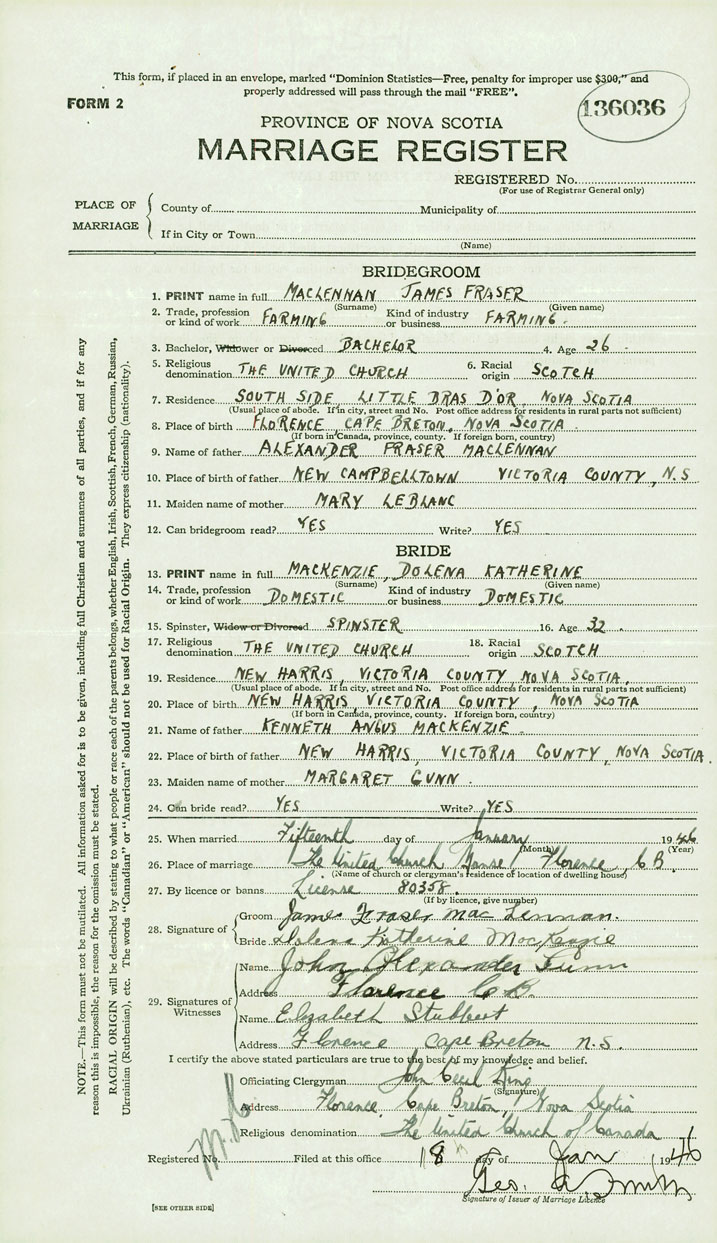 This form, if placed in an envelope, marked "Dominion Statistics—Free, penalty for improper use $300," and
properly addressed will pass through the mail "FREE".
FORM 2
136036
PROVINCE OF NOVA SCOTIA
MARRIAGE REGISTER
REGISTERED No.
(For use of Registrar General only)
PLACE OF MARRIAGE
County of Municipality of
If in City or Town
(Name)
BRIDEGROOM
1. PRINT name in full MACLENNAN JAMES FRASER
(Surname) (Given name)
2. Trade, profession or kind of work FARMING Kind of industry or business FARMING.
3. Bachelor, Widower or Divorced BACHELOR 4. Age 26
5. Religious denomination THE UNITED CHURCH 6. Racial origin SCOTCH
7. Residence SOUTH SIDE, LITTLE BRAS D'OR, NOVA SCOTIA
(Usual place of abode. If in city, street and No. Post office address for residents in rural parts not sufficient)
8. Place of birth FLORENCE, CAPE BRETON, NOVA SCOTIA.
(If born in Canada, province, county. If foreign born, country)
9. Name of father ALEXANDER FRASER MACLENNAN
10. Place of birth of father NEW CAMPBELLTOWN VICTORIA COUNTY, N.S
11. Maiden name of mother MARY LEBLANC
12. Can bridegroom read? YES Write? YES
BRIDE
13. PRINT name in full MACKENZIE, DOLENA KATHERINE
(Surname) (Given name)
14. Trade, profession or kind of work DOMESTIC Kind of industry or business DOMESTIC
15. Spinster, Widow or Divorced SPINSTER 16. Age 32.
17. Religious denomination THE UNITED CHURCH 18. Racial origin SCOTCH
19. Residence NEW HARRIS, VICTORIA COUNTY, NOVA SCOTIA.
(Usual place of abode. If in city, street and No. Post office address for residents in rural parts not sufficient)
20. Place of birth NEW HARRIS, VICTORIA COUNTY, NOVA SCOTIA
(If born in Canada, province, county. If foreign born, country)
21. Name of father KENNETH ANGUS MACKENZIE.
22. Place of birth of father NEW HARRIS, VICTORIA COUNTY, NOVA SCOTIA.
23. Maiden name of mother MARGARET GUNN.
24. Can bride read? YES Write? YES
25. When married Fifteenth day of January 1946
(Month) (Year)
26. Place of marriage The United Church Manse Florence, C B.
(Name of church or clergyman's residence of location of dwelling house)
27. By licence or banns License 80358.
(If by licence, give number)
28. Signature of
Groom James Fraser MacLennan.
Bride Dolena Katherine MacKenzie
29. Signatures of Witnesses
Name John Alexander
Address Florence C B.
Name Elizabeth Stubbert
Address Florence Cape Breton N.S.
I certify the above stated particulars are true to the best of my knowledge and belief.
Officiating Clergyman John Cecil King
(Signature)
Address Florence, Cape Breton, Nova Scotia
Religious denomination The United Church of Canada
Registered No. Filed at this office 18 day of Jan 1946
Geo. A. Smith
Signature of Issuer of Marriage Licence
[SEE OTHER SIDE]
NOTE.—This form must not be mutilated. All information asked for is to be given, including full Christian and surnames of all parties, and if for any
reason this is impossible, the reason for the omission must be stated.
RACIAL ORIGIN will be described by stating to what people or race each of the parents belongs, whether English, Irish, Scottish, French, German, Russian,
Ukrainian (Ruthenian), etc. The words "Canadian" or "American" should not be used for Racial Origin. They express citizenship (nationality).